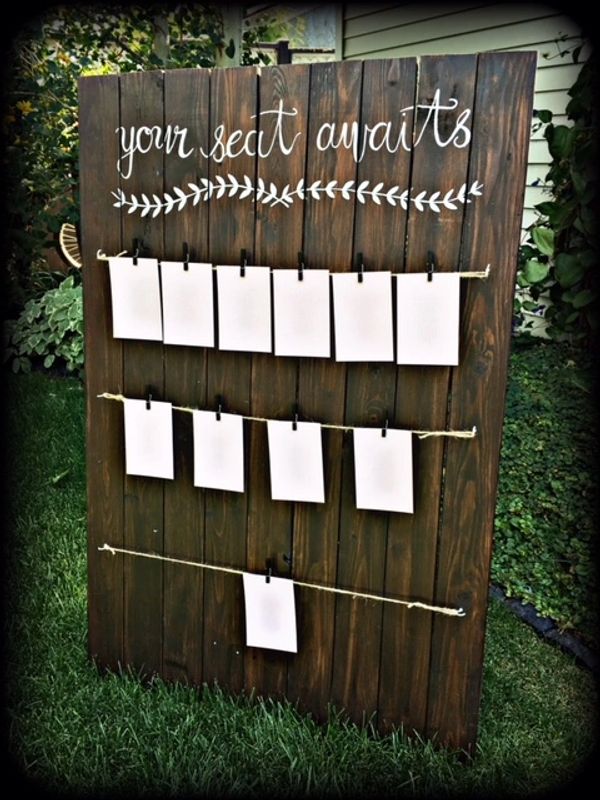 your seat awaits